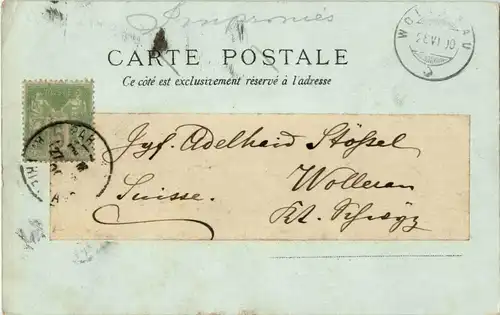 Imprimés
CARTE POSTALE
Ce côté est exclusivement réservé à l'adresse
Jgf. Adelheid Stössel
Wollerau
Suisse.
Kt. Schwyz